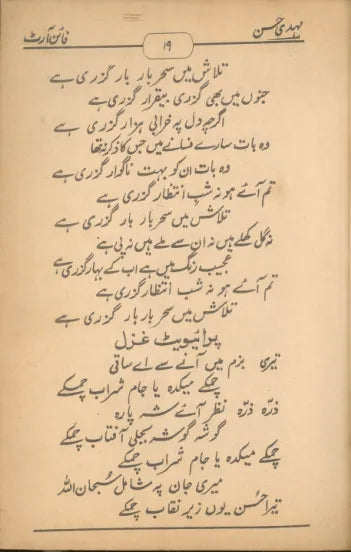 مہدی حسن
۱۹
فائن آرٹ
تلاش میں سحر بار بار گزری ہے
جنوں میں بھی گزری بیقرار گزری ہے
اگرچہ دل پہ خرابی ہزار گزری ہے
وہ بات سارے فسانے میں جس کا ذکر نہ تھا
وہ بات ان کو بہت ناگوار گزری ہے
تم آئے ہو نہ شب انتظار گزری ہے
تلاش میں سحر بار بار گزری ہے
نہ گل کھلے ہیں نہ ان سے ملے ہیں نہ پی ہے
عجیب رنگ میں ہے اب کے بہار گزری ہے
تم آئے ہو نہ شب انتظار گزری ہے
تلاش میں سحر بار بار گزری ہے
پرائیویٹ غزل
تیری بزم میں آنے سے اے ساقی
چمکے میکدہ یا جام شراب چمکے
ذرّہ ذرّہ نظر آئے شہ پارہ
گوشہ گوشہ بجلی آفتاب چمکے
چمکے میکدہ یا جام شراب چمکے
میری جان پہ شامل سُبحان اللہ
تیرا حُسن یوں زیر نقاب چمکے